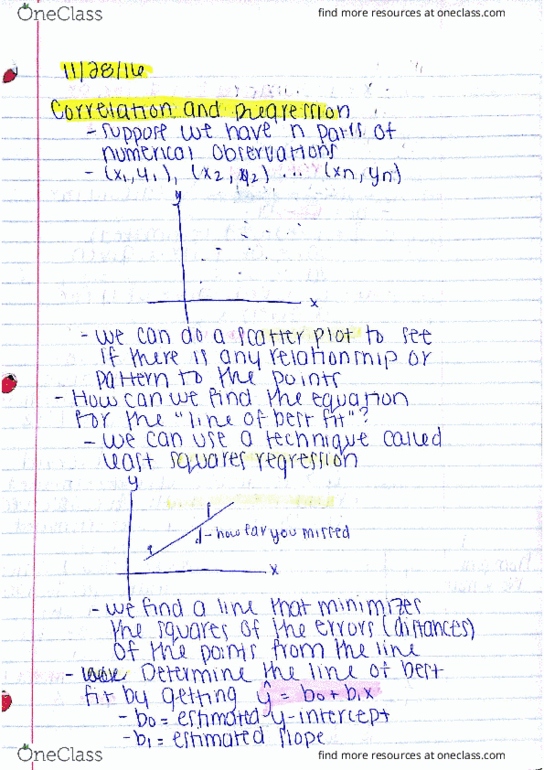 OneClass
find more resources at oneclass.com
11/28/16
Correlation and Regression
- suppose we have n pairs of
numerical observations
- (x1, y1), (x2, y2) ... (xn, yn)
y
x
- we can do a scatter plot to see
if there is any relationship or
pattern to the points
- How can we find the equation
for the "line of best fit"?
- we can use a technique called
least squares regression
y
- how far you missed
x
- we find a line that minimizes
the squares of the errors (distances)
of the points from the line
- Determine the line of best
fit by getting ŷ = b0 + b1x
- b0 = estimated y-intercept
- b1 = estimated slope
OneClass
find more resources at oneclass.com